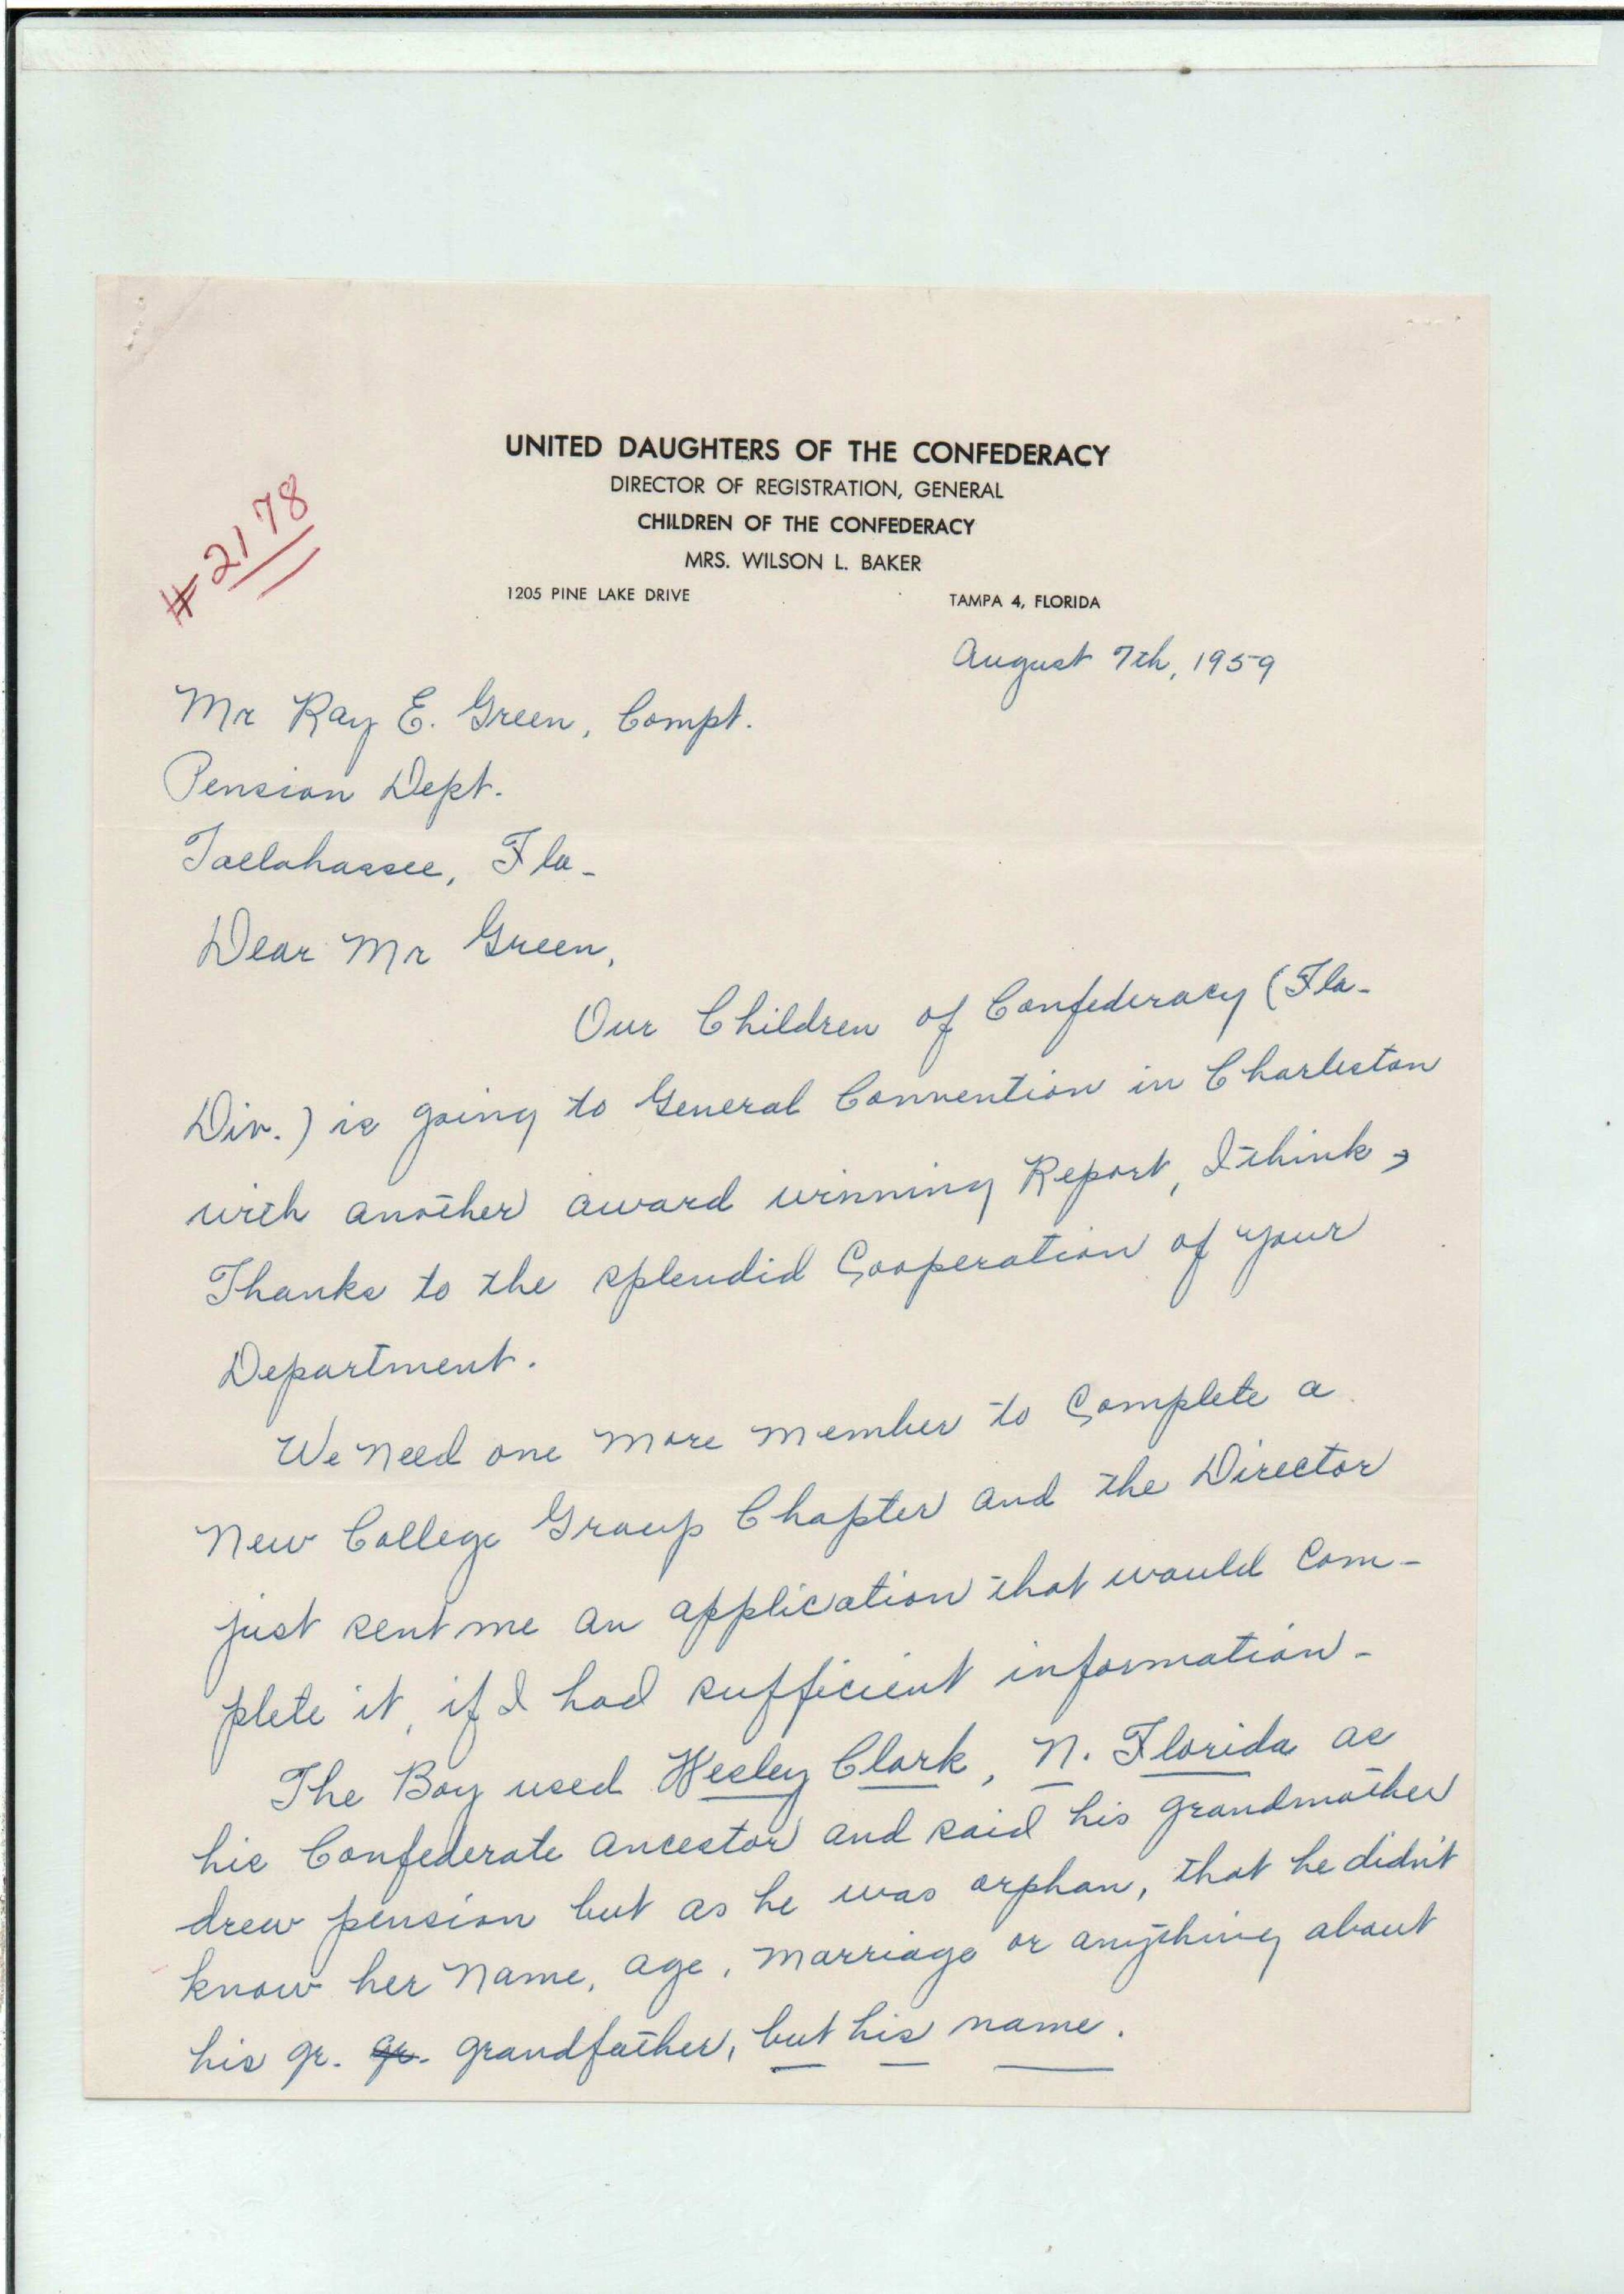 UNITED DAUGHTERS OF THE CONFEDERACY
DIRECTOR OF REGISTRATION, GENERAL
CHILDREN OF THE CONFEDERACY
MRS. WILSON L. BAKER
1205 PINE LAKE DRIVE TAMPA 4, FLORIDA
#2178
August 7th, 1959
Mr Ray E. Green, Compt.
Pension Dept.
Tallahassee, Fla-
Dear Mr Green,
Our Children of Confederacy (Fla-
Div.) is going to General Convention in Charleston
with another award winning Report, I think,
Thanks to the splendid Cooperation of your
Department.
We need one more member to Complete a
New College Group Chapter and the Director
just sent me an application that would com-
plete it, if I had sufficient information-
The Boy used Wesley Clark, N. Florida as
his Confederate ancestor and said his grandmother
drew pension but as he was orphan, that he didn't
know her name, age, marriage or anything about
his gr. gr. grandfather, but his name.